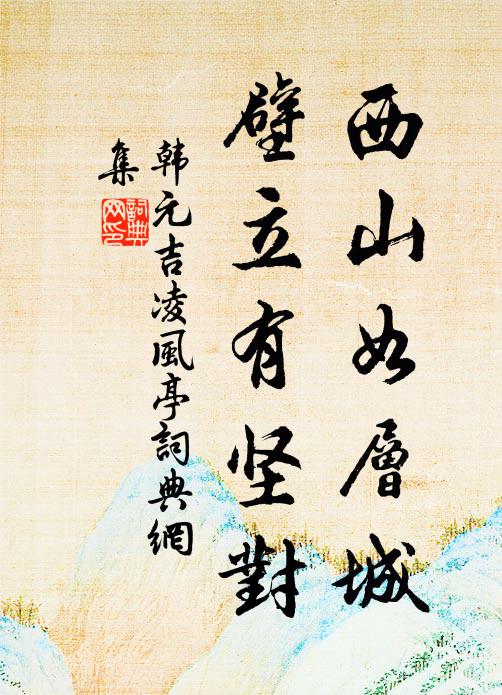 西山如層城
壁立有坚對
韩元吉凌風亭詞典網
集
詞典
网印